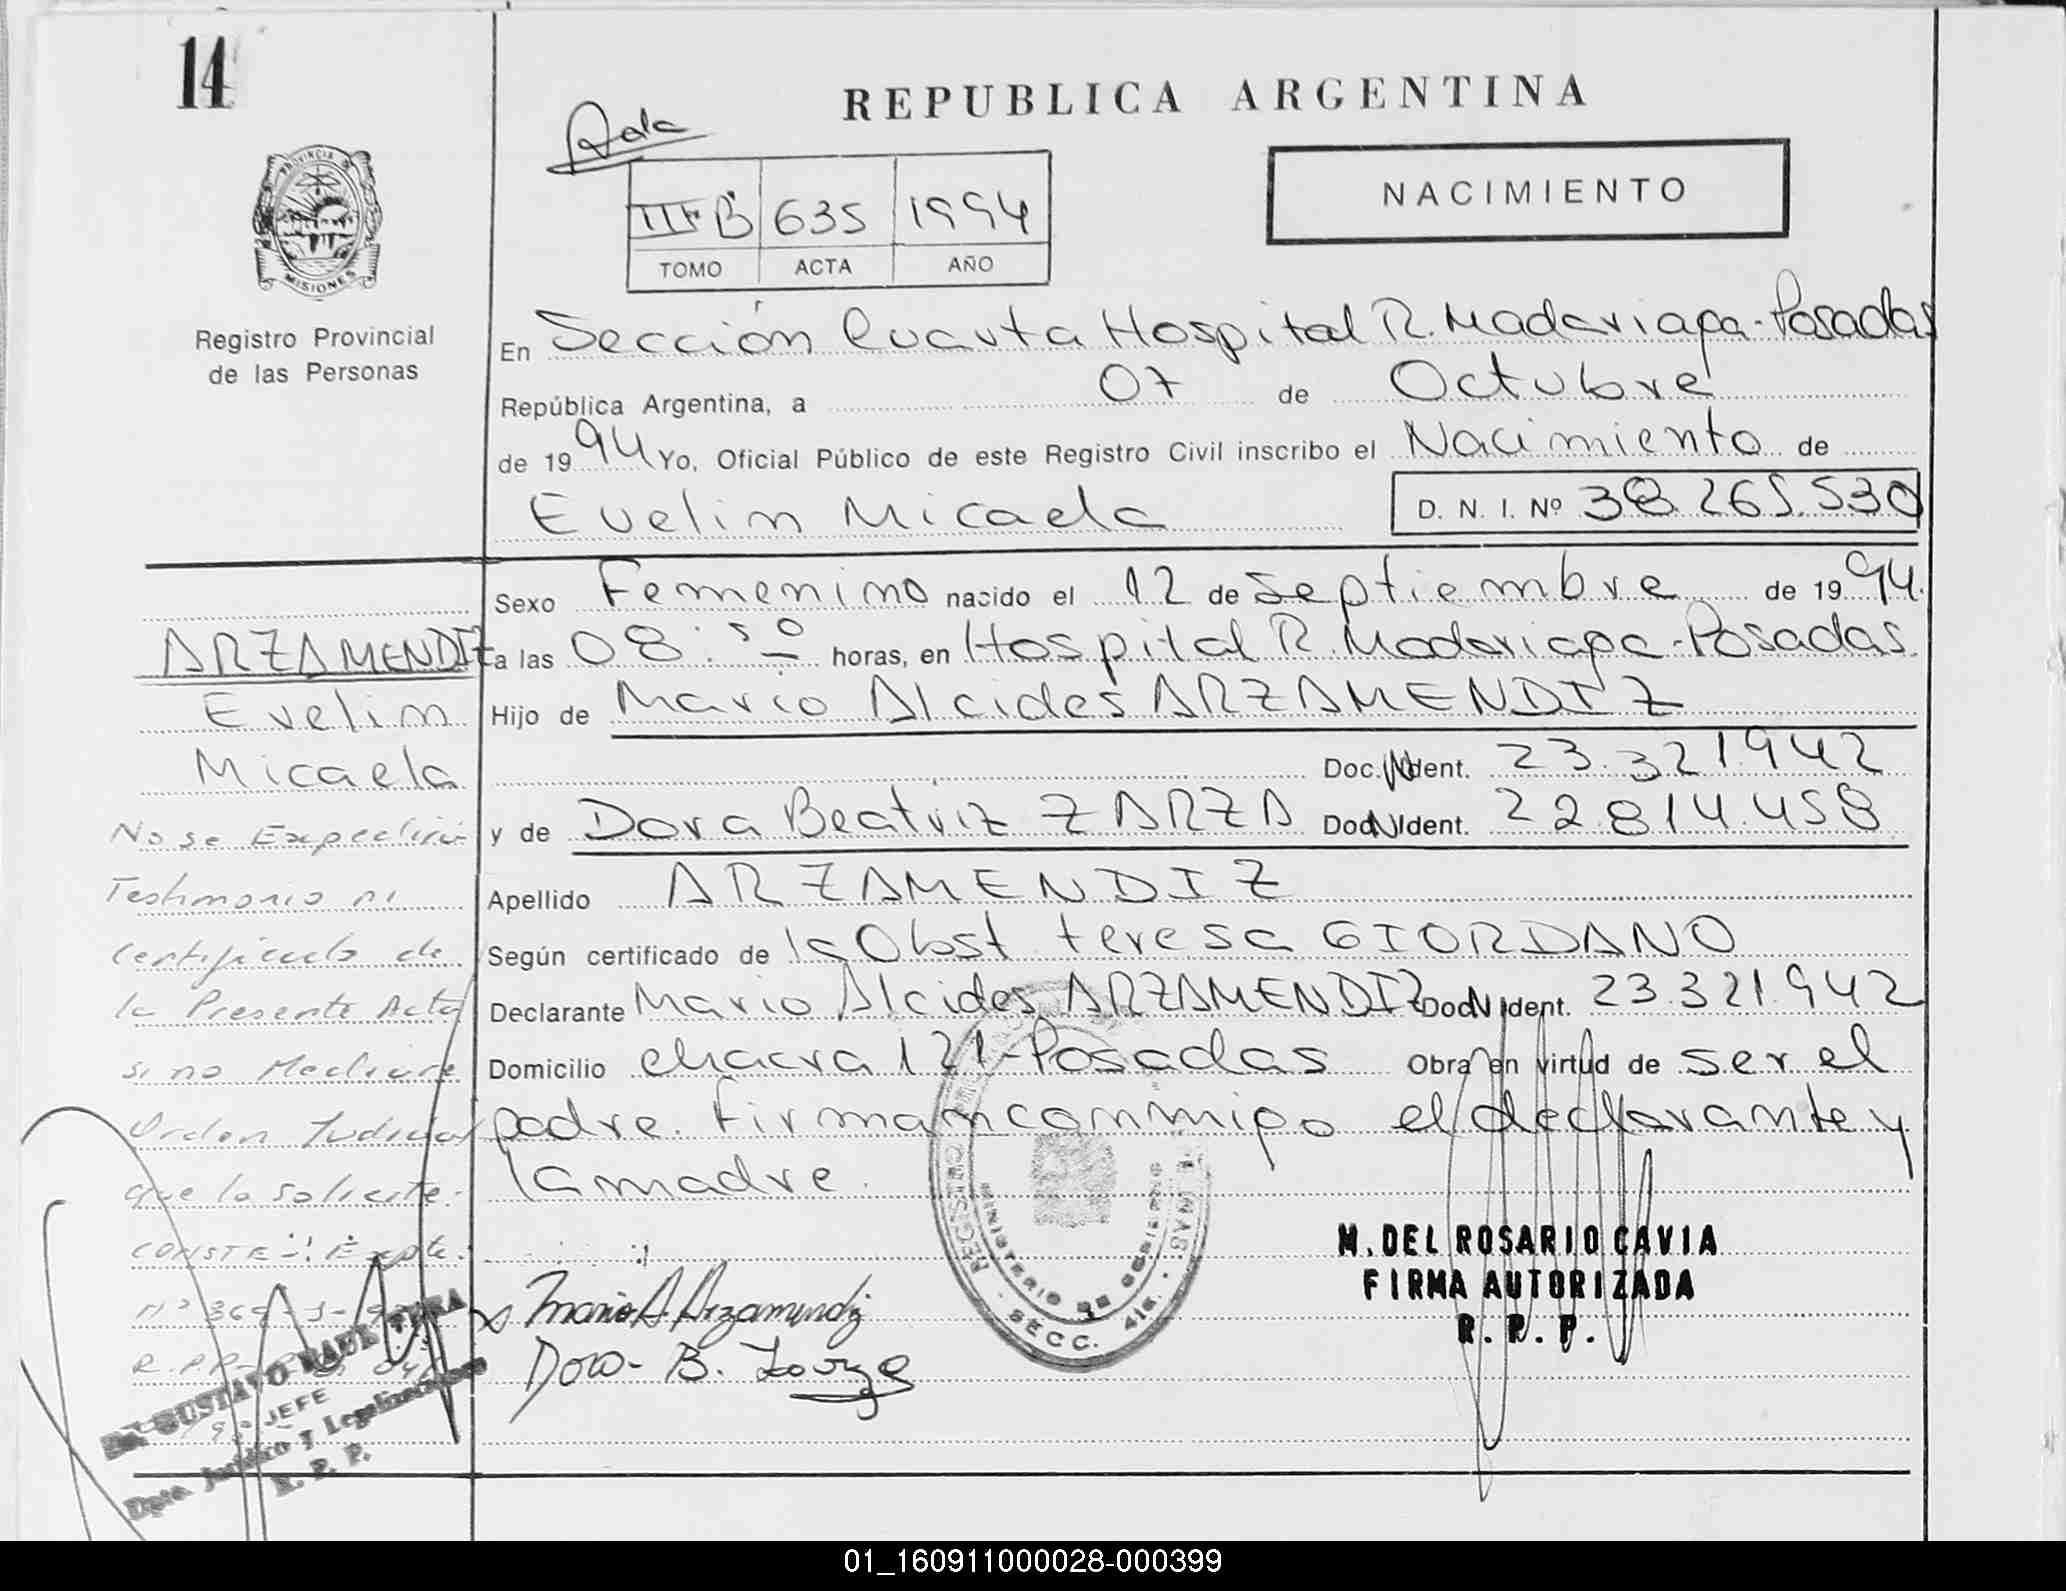 14
REPUBLICA ARGENTINA
NACIMIENTO
III B 635 1994
TOMO ACTA AÑO
PROVINCIA DE
MISIONES
Registro Provincial
de las Personas
En Sección Cuarta Hospital R. Madariaga - Posadas
República Argentina, a 07 de Octubre
de 1994 Yo, Oficial Público de este Registro Civil inscribo el Nacimiento de
Evelin Micaela D. N. I. Nº 38.265.530
Sexo Femenino nacido el 12 de Septiembre de 1994.
a las 08:50 horas, en Hospital R. Madariaga - Posadas.
Hijo de Mario Alcides ARZAMENDIZ
Doc. N Ident. 23.321.942
y de Dora Beatriz ZARZA Doc N Ident. 22.814.458
Apellido ARZAMENDIZ
Según certificado de la Obst teresa GIORDANO
Declarante Mario Alcides ARZAMENDIZ Doc N Ident. 23.321.942
Domicilio chacra 121 - Posadas Obra en virtud de ser el
padre. Firman conmigo el declarante y
la madre.
ARZAMENDIZ
Evelin
Micaela
No se Expedirá
Testimonio ni
Certificado de
la Presente Acta
si no Mediare
Orden Judicial
que lo solicite.
CONSTE Expte.
Nº 369
R.P.P.
GUSTAVO RAUL
JEFE
Dpto. Jurídico y Legalizaciones
R. P. P.
Mario A. Arzamendiz
Dora B. Zarza
MINISTERIO DE GOBIERNO
SECC. 4ta.
M. DEL ROSARIO CAVIA
FIRMA AUTORIZADA
R. P. P.
01_160911000028-000399